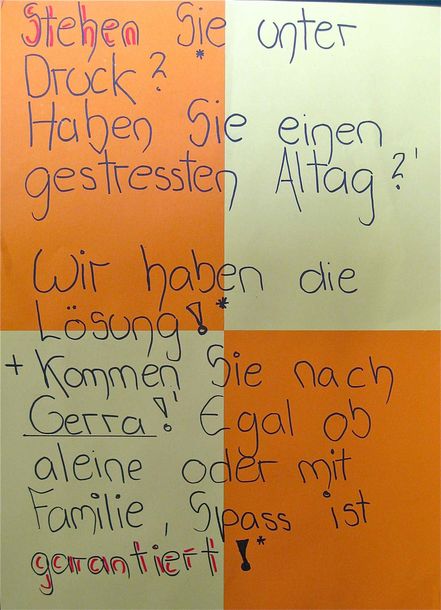 Stehen Sie unter
Druck? *
Haben Sie einen
gestressten Altag?'
Wir haben die
Lösung!*
+ Kommen Sie nach
Gerra! Egal ob
aleine oder mit
Familie, Spass ist
garantiert!*